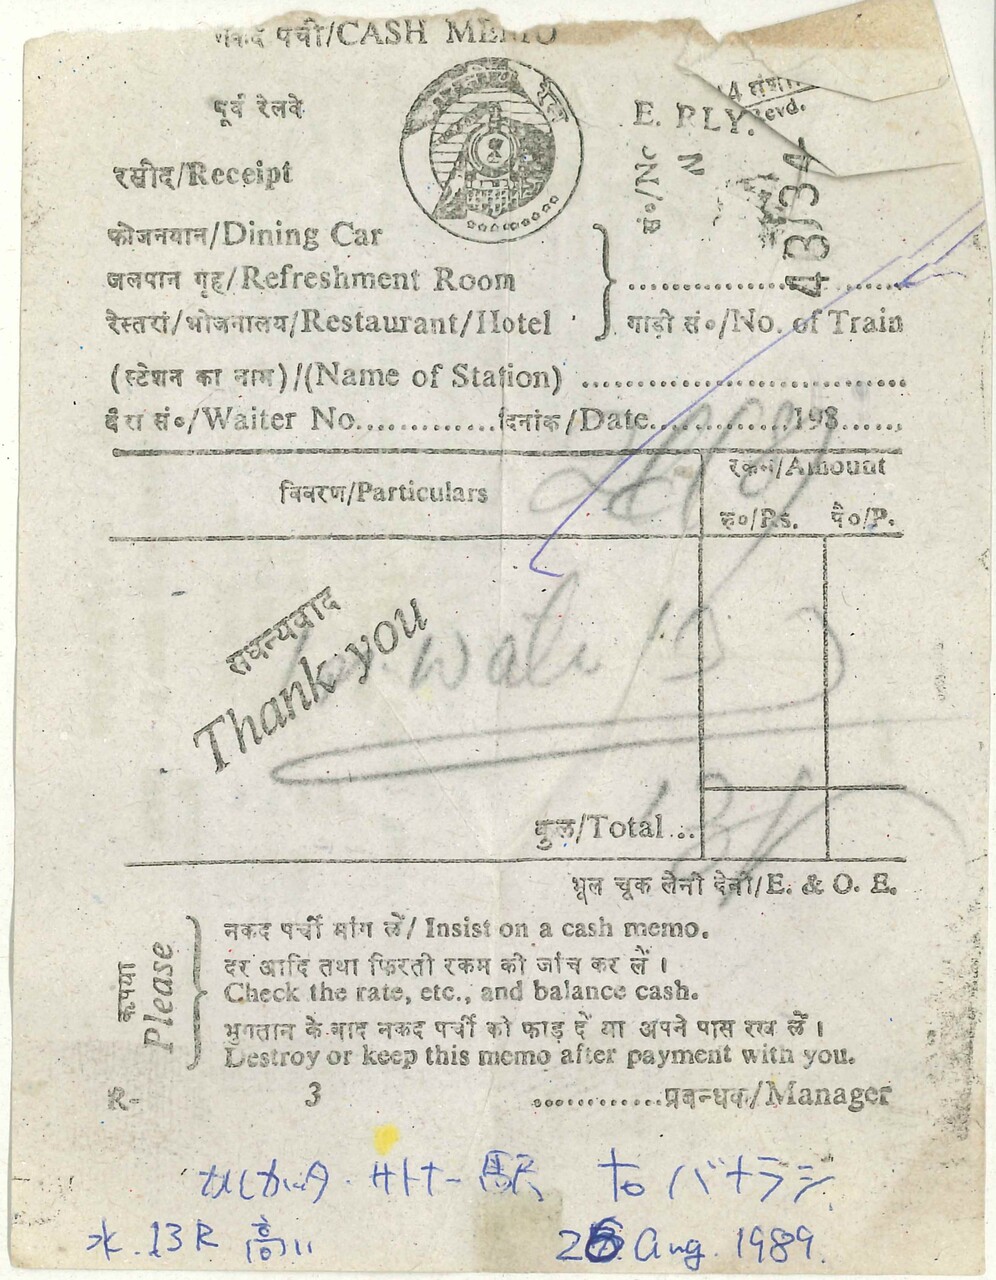 नकद पर्ची/CASH MEMO
पूर्व रेलवे
E. RLY.
रसीद/Receipt
सं०/No
N
4B/34
फोजनयान/Dining Car
जलपान गृह/Refreshment Room
रेस्तरां/भोजनालय/Restaurant/Hotel
गाड़ी सं०/No. of Train
(स्टेशन का नाम)/(Name of Station) ..............................
बैरा सं०/Waiter No..............दिनांक/Date..............198......
विवरण/Particulars
रकम/Amount
रु०/Rs. पै०/P.
सधन्यवाद
Thank you
wate 13
कुल/Total ...
13/
भूल चूक लेनी देनी/E. & O. E.
कृपया
Please
नकद पर्ची मांग लें/ Insist on a cash memo.
दर आदि तथा फिरती रकम की जांच कर लें ।
Check the rate, etc., and balance cash.
भुगतान के बाद नकद पर्ची को फाड़ दें या अपने पास रख लें ।
Destroy or keep this memo after payment with you.
R- 3 ............प्रबन्धक/Manager
駅 to バナラシ
水 . 13R 高い 26 Aug. 1989.